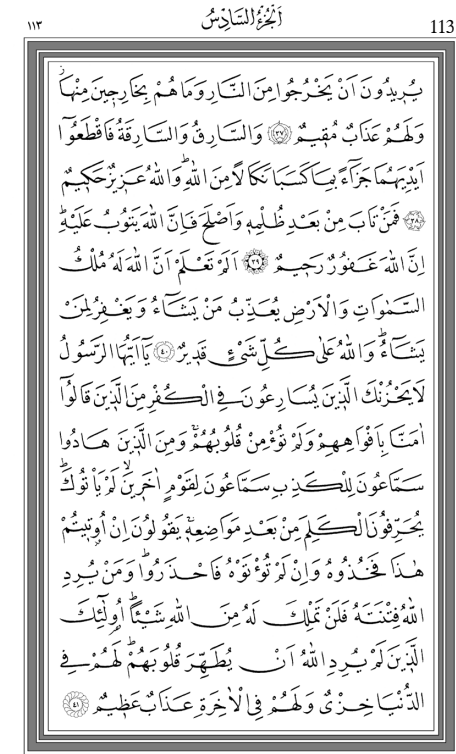 ١١٣ اَلْجُزْءُ السَّادِسُ 113
يُرِيدُونَ اَنْ يَخْرُجُوا مِنَ النَّارِ وَمَا هُمْ بِخَارِجِينَ مِنْهَاۘ
وَلَهُمْ عَذَابٌ مُقِيمٌ ﴿٣٧﴾ وَالسَّارِقُ وَالسَّارِقَةُ فَاقْطَعُٓوا
اَيْدِيَهُمَا جَزَٓاءً بِمَا كَسَبَا نَكَالًا مِنَ اللّٰهِۜ وَاللّٰهُ عَزِيزٌ حَكِيمٌ
﴿٣٨﴾ فَمَنْ تَابَ مِنْ بَعْدِ ظُلْمِهِ وَاَصْلَحَ فَاِنَّ اللّٰهَ يَتُوبُ عَلَيْهِۜ
اِنَّ اللّٰهَ غَفُورٌ رَحِيمٌ ﴿٣٩﴾ اَلَمْ تَعْلَمْ اَنَّ اللّٰهَ لَهُ مُلْكُ
السَّمٰوَاتِ وَالْاَرْضِ يُعَذِّبُ مَنْ يَشَٓاءُ وَيَغْفِرُ لِمَنْ
يَشَٓاءُۜ وَاللّٰهُ عَلٰى كُلِّ شَيْءٍ قَدِيرٌ ﴿٤٠﴾ يَٓا اَيُّهَا الرَّسُولُ
لَا يَحْزُنْكَ الَّذِينَ يُسَارِعُونَ فِي الْكُفْرِ مِنَ الَّذِينَ قَالُٓوا
اٰمَنَّا بِاَفْوَاهِهِمْ وَلَمْ تُؤْمِنْ قُلُوبُهُمْۚ وَمِنَ الَّذِينَ هَادُوا
سَمَّاعُونَ لِلْكَذِبِ سَمَّاعُونَ لِقَوْمٍ اٰخَرِينَۙ لَمْ يَأْتُوكَۜ
يُحَرِّفُونَ الْكَلِمَ مِنْ بَعْدِ مَوَاضِعِهِۚ يَقُولُونَ اِنْ اُو۫تِيتُمْ
هٰذَا فَخُذُوهُ وَاِنْ لَمْ تُؤْتَوْهُ فَاحْذَرُواۜ وَمَنْ يُرِدِ
اللّٰهُ فِتْنَتَهُ فَلَنْ تَمْلِكَ لَهُ مِنَ اللّٰهِ شَيْـًٔاۜ اُو۬لٰٓئِكَ
الَّذِينَ لَمْ يُرِدِ اللّٰهُ اَنْ يُطَهِّرَ قُلُوبَهُمْۜ لَهُمْ فِي
الدُّنْيَا خِزْيٌ وَلَهُمْ فِي الْاٰخِرَةِ عَذَابٌ عَظِيمٌ ﴿٤١﴾